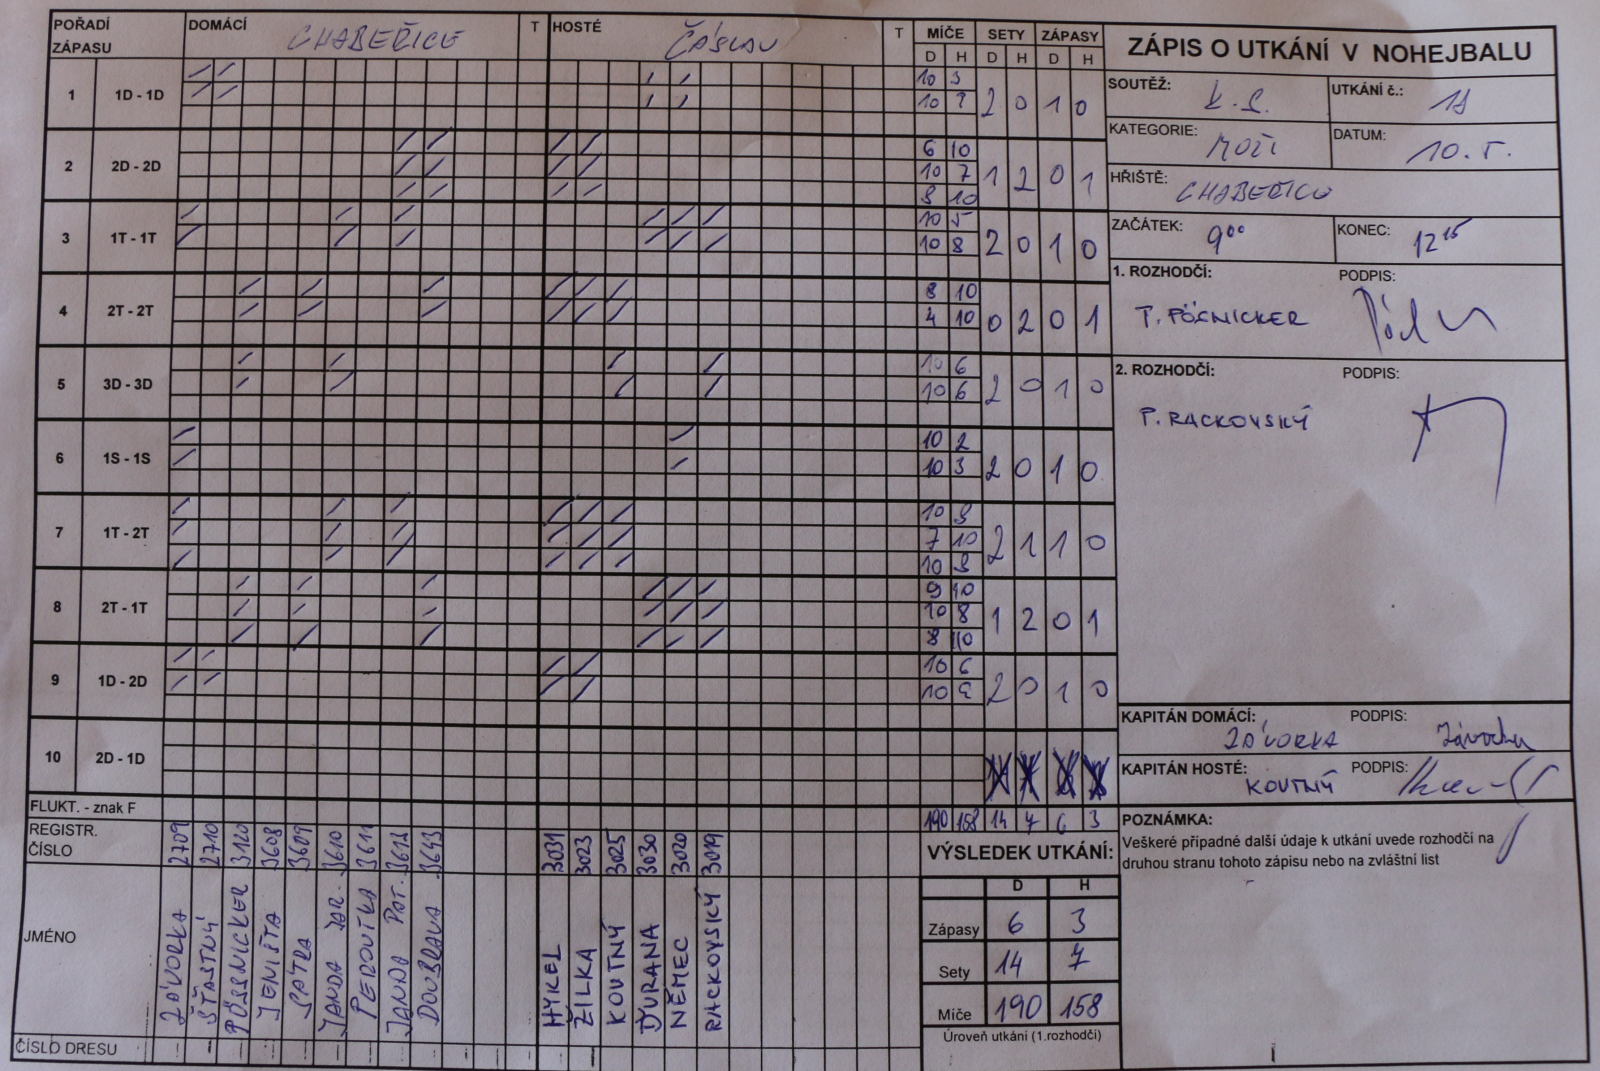 POŘADÍ ZÁPASU DOMÁCÍ CHABEŘICE T HOSTÉ ČÁSLAV T MÍČE SETY ZÁPASY
D H D H D H
ZÁPIS O UTKÁNÍ V NOHEJBALU
SOUTĚŽ: K.S. UTKÁNÍ č.:
KATEGORIE: MUŽI DATUM: 10.5.
HŘIŠTĚ: CHABEŘICE
ZAČÁTEK: 9⁰⁰ KONEC: 12¹⁵
1. ROZHODČÍ: PODPIS:
P. PÖSNICKER
2. ROZHODČÍ: PODPIS:
P. RACKOVSKÝ
KAPITÁN DOMÁCÍ: PODPIS:
ZÁVORKA Závorka
KAPITÁN HOSTÉ: PODPIS:
KOUTNÝ
POZNÁMKA:
Veškeré případné další údaje k utkání uvede rozhodčí na
druhou stranu tohoto zápisu nebo na zvláštní list
1 1D - 1D 2 0 1 0
10 3
10
2 2D - 2D 1 2 0 1
6 10
10 7
8 10
3 1T - 1T 2 0 1 0
10 5
10 8
4 2T - 2T 0 2 0 1
8 10
4 10
5 3D - 3D 2 0 1 0
10 6
10 6
6 1S - 1S 2 0 1 0
10 2
10 3
7 1T - 2T 2 1 1 0
10 8
7 10
10 8
8 2T - 1T 1 2 0 1
9 10
10 8
8 10
9 1D - 2D 2 0 1 0
10 6
10
10 2D - 1D
FLUKT. - znak F 190 158 14 7 6 3
REGISTR. ČÍSLO 2709 2710 3120 3608 3609 3610 3611 3612 3643 3031 3023 3025 3030 3020 3019
JMÉNO ZÁVORKA ŠŤASTNÝ PÖSSNICKER JENIŠTA SATRA JANDA JAR. PEROUTKA JANDA PAT. DOUBRAVA HYKEL ŽILKA KOUTNÝ ĎURANA NĚMEC RACKOVSKÝ
ČÍSLO DRESU
VÝSLEDEK UTKÁNÍ:
D H
Zápasy 6 3
Sety 14 7
Míče 190 158
Úroveň utkání (1.rozhodčí)